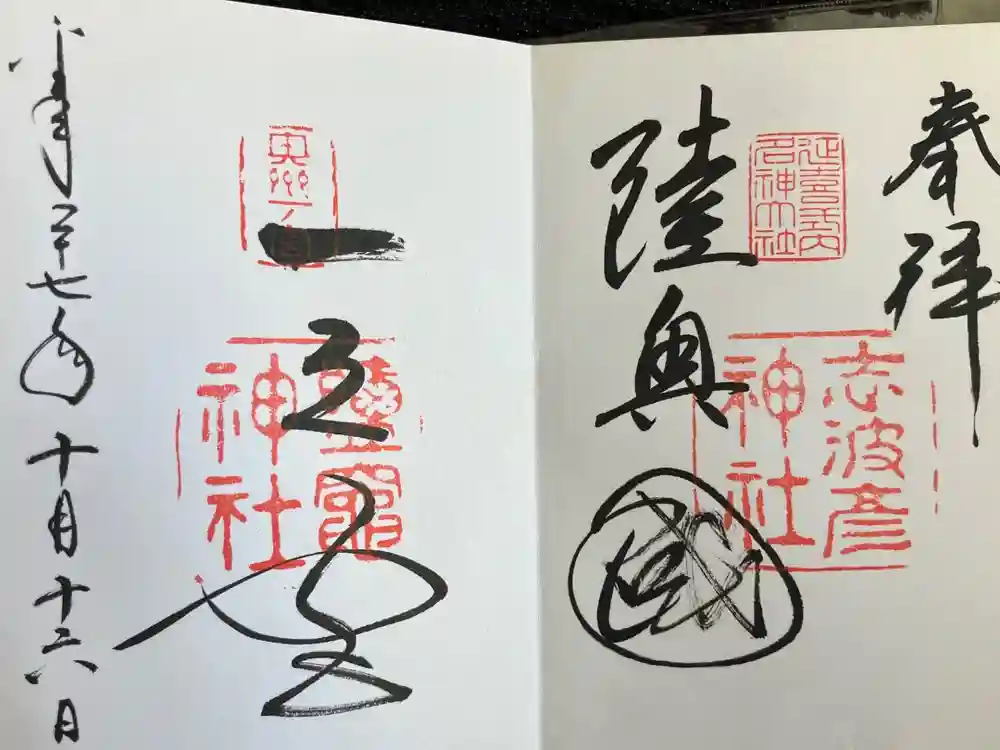 奉拝
延喜式内
名神大社
陸奥國
志波彦
神社
奥州一ノ宮
一之宮
鹽竈
神社
平成二十七年十月十六日